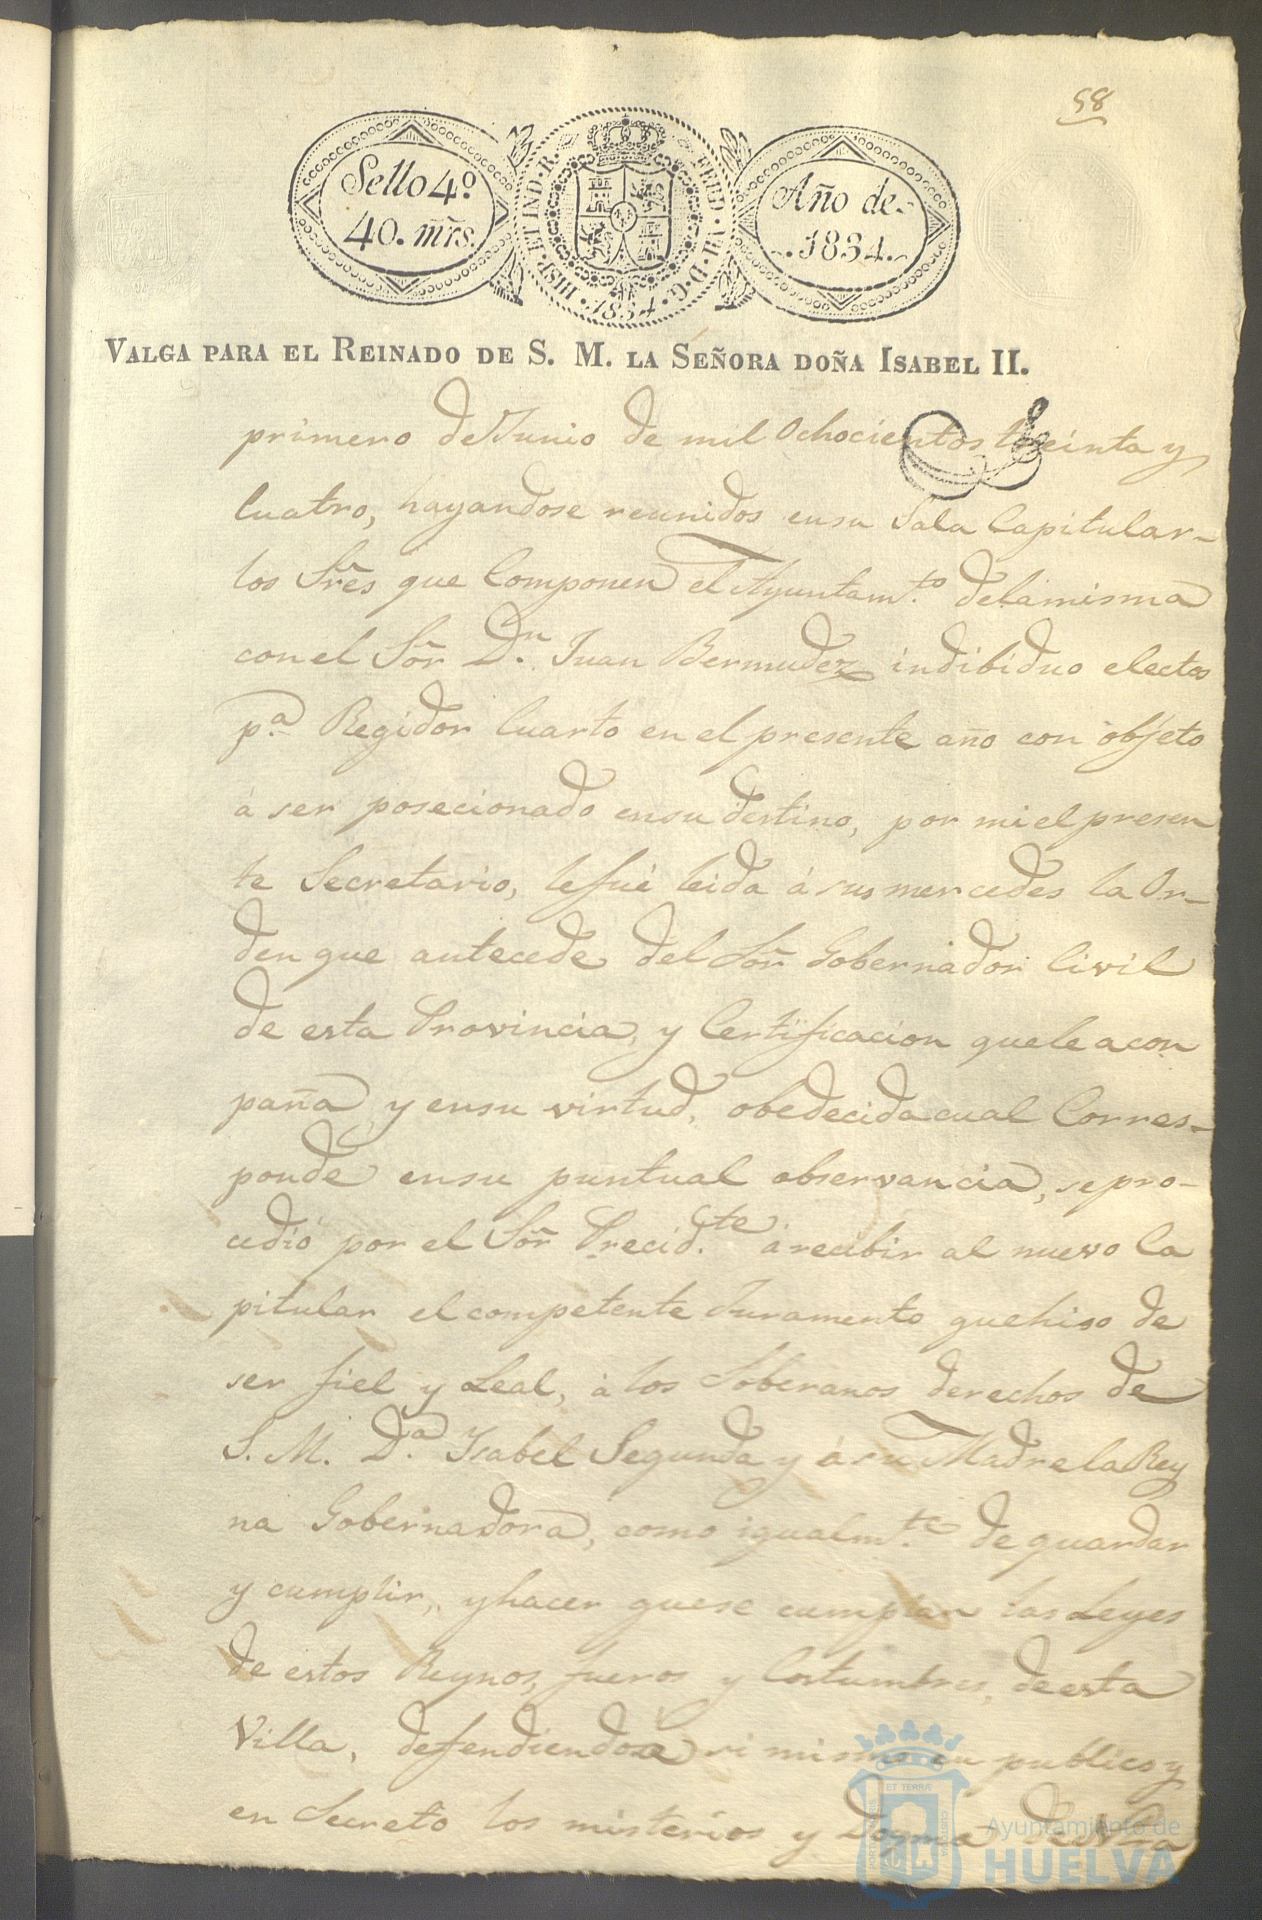 58
Sello 4º
40. mrs.
HISP. ET IND. R.
FERD. VII. D. G.
1834
Año de
1834.
VALGA PARA EL REINADO DE S. M. LA SEÑORA DOÑA ISABEL II.
primero de Junio de mil Ochocientos treinta y
Cuatro, hayandose reunidos ensu Sala Capitular
los Sres que Componen el Ayuntamto. delamisma
con el Sor Dn. Juan Bermudez indibiduo electos
pa. Regidor Cuarto en el presente año con objeto
á ser posecionado ensu destino, por mi el presen
te Secretario, lefué leida á sus mercedes la Or-
den que antecede del Sor Gobernador Civil
de esta Provincia, y Certificacion quele acon
paña, y ensu virtud, obedecida cual Corres-
ponde ensu puntual observancia, se pro-
cedió por el Sor Precidte. á recibir al nuevo Ca
pitular el competente Juramento quehiso de
ser fiel y Leal, á los Soberanos derechos de
S. M. Da. Isabel Segunda y á su Madre la Rey
na Gobernadora, como igualmte. de guardar
y cumplir, y hacer quese cumplan las Leyes
de estos Reynos, fueros y Costumbres, de esta
Villa, defendiendo á si mismo en publico y
en Secreto los misterios y Dogma de Ntra
Ayuntamiento de
HUELVA